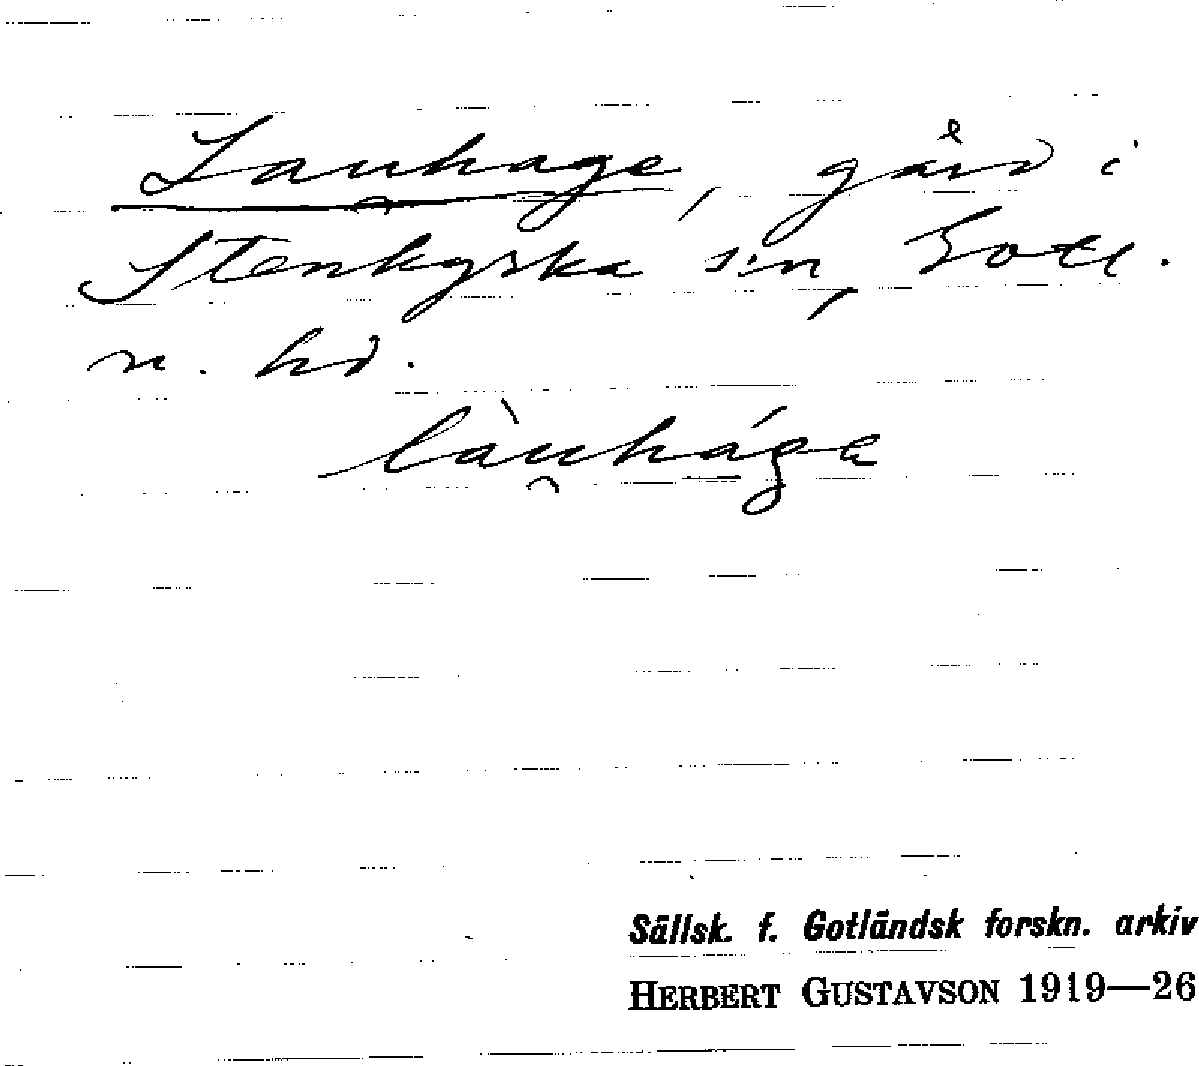 Lauhage, gård i
Stenkyrka sn, Gotl.
n. hd.
làu̯háge
Sällsk. f. Gotländsk forskn. arkiv
HERBERT GUSTAVSON 1919—26